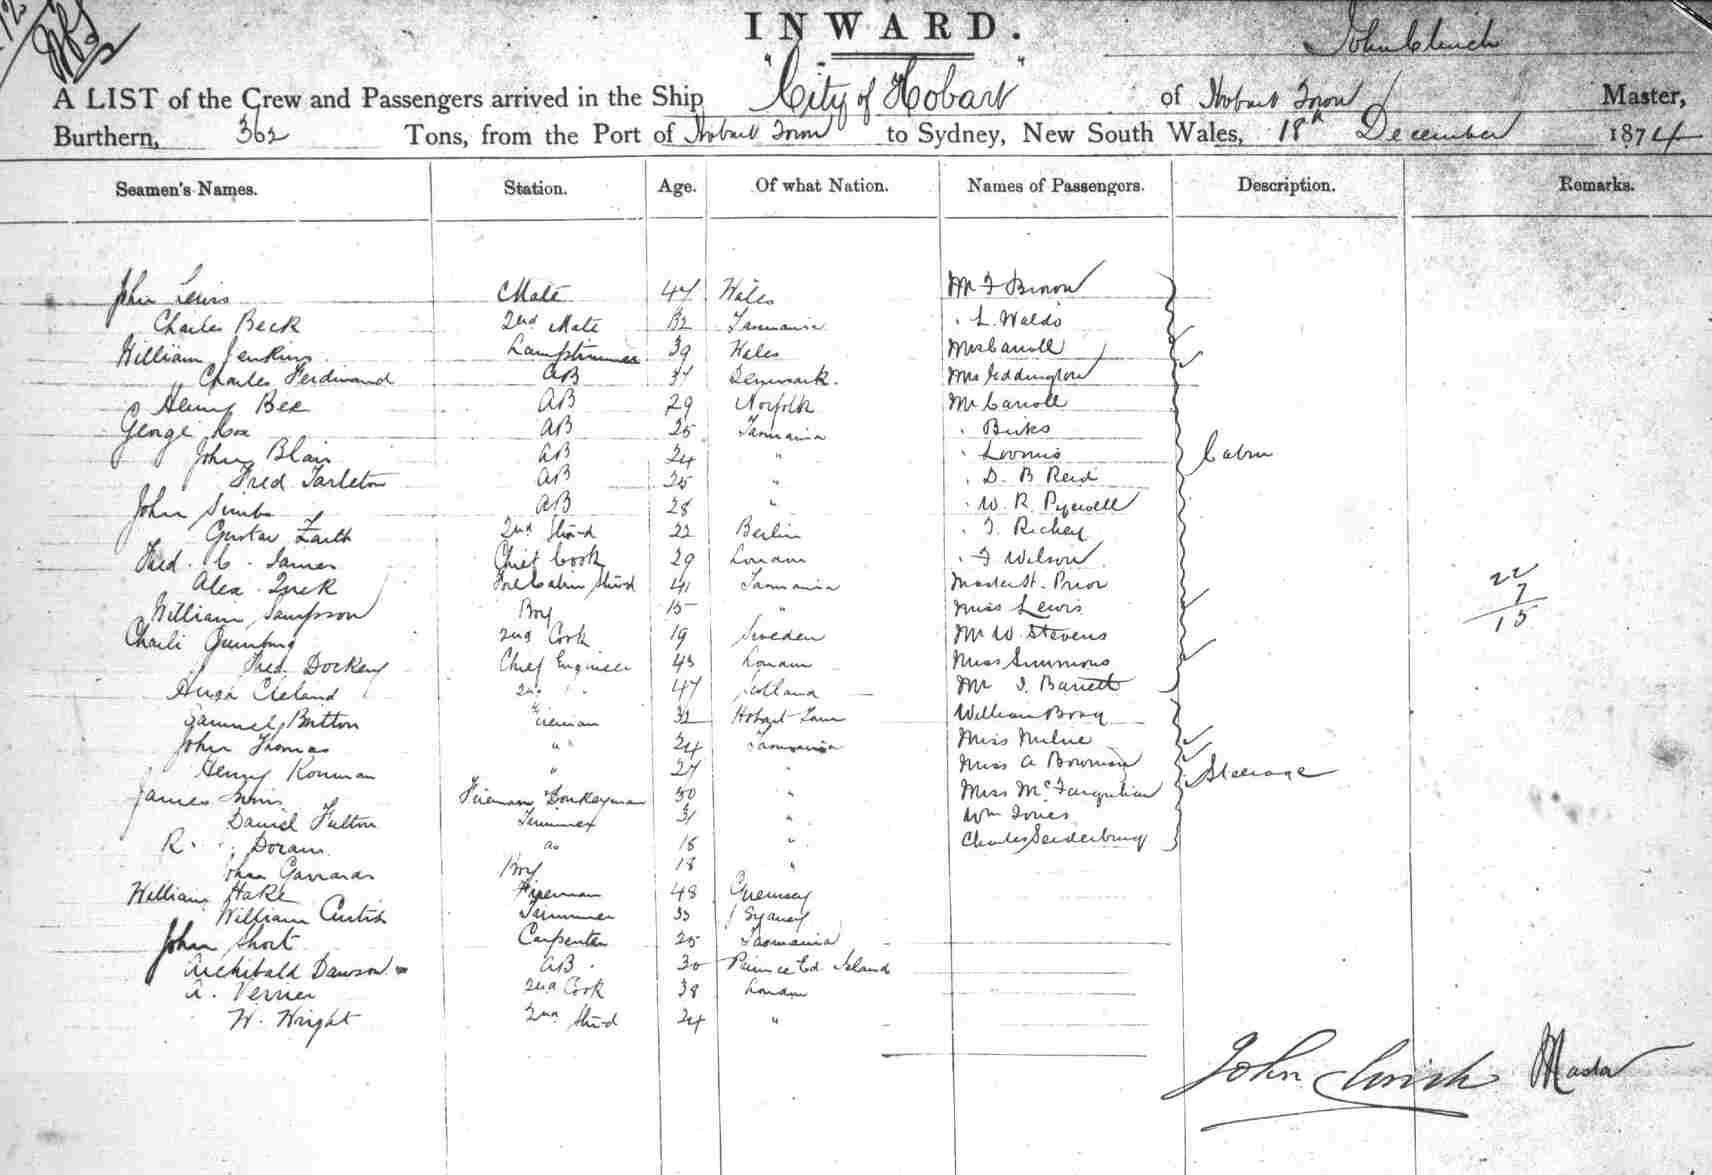 INWARD.
John Clinch
A LIST of the Crew and Passengers arrived in the Ship "City of Hobart" of Hobart Town Master,
Burthern, 362 Tons, from the Port of Hobart Town to Sydney, New South Wales, 18th December 1874
Seamen's Names. Station. Age. Of what Nation. Names of Passengers. Description. Remarks.
John Lewis Mate 47 Wales Mr F
Charles Beck 2nd Mate 32 Tasmania " L. Waldo
William Jenkins Lamptrimmer 39 Wales Mrs Carroll
Charles Ferdinand AB 37 Denmark. Mrs Eddington
Henry Bee AB 29 Norfolk Mr Carroll
George Cox AB 25 Tasmania " Birks
John Blair AB 24 " " Loomis Cabin
Fred Tarleton AB 25 " " D. B Reid
John AB 28 " " W. R.
Gustav 2nd Stwd 22 Berlin " T. Richey
Fred. C. James Chief Cook 29 London " F Wilson
Alex Fore Cabin Stwd 41 Tasmania Master St. Prior 22
William Sampson Boy 15 " Miss Lewis 7
2nd Cook 19 Sweden Mr W Stevens 15
Fred. Dockery Chief Engineer 43 London Miss Simmons
Hugh Cleland 2nd " 47 Scotland Mr J. Barrett
Samuel Britton Fireman 32 Hobart Town William Bray
John Thomas " " 24 Tasmania Miss Milne
Henry " 27 " Miss A Bowman Steerage
James Fireman Donkeyman 50 " Miss McFarquhar
Daniel Fulton Trimmer 31 " Wm Jones
R. Doran do 18 " Charles
John Boy 18 "
William Hake Fireman 48 Guernsey
William Curtis Trimmer 33 Sydney
John Short Carpenter 25 Tasmania
Archibald Dawson AB. 30 Prince Ed Island
A. Verrier 2nd Cook 38 London
W. Wright 2nd Stwd 24 "
John Clinch Master